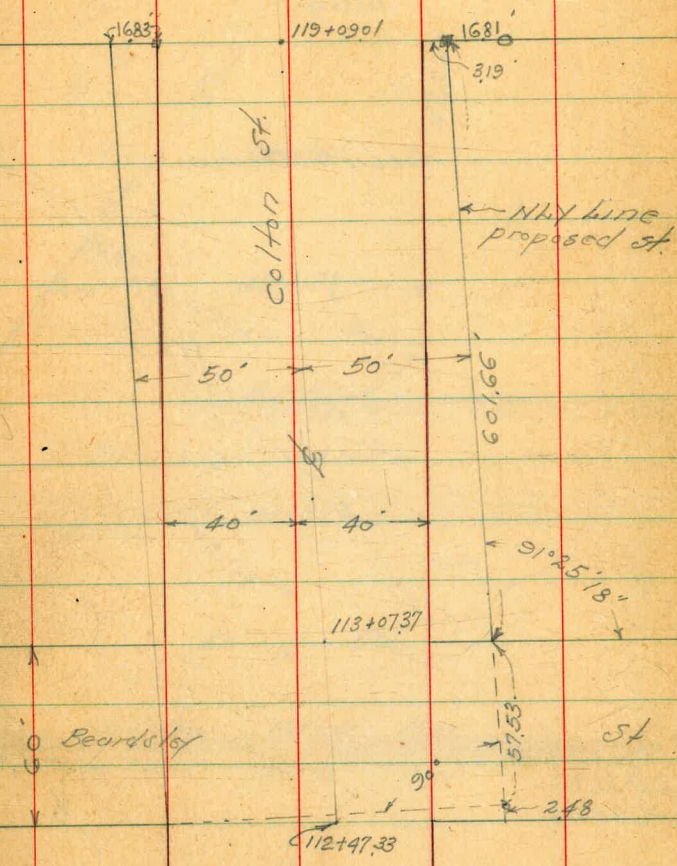 1683'
119+0901
1681'
319
Colton St.
NLY Line
proposed st.
50'
50'
601.66'
40'
40'
91°25'18"
113+07.37
60'
Beardsley
57.53
St
90°
2.48
112+47.33